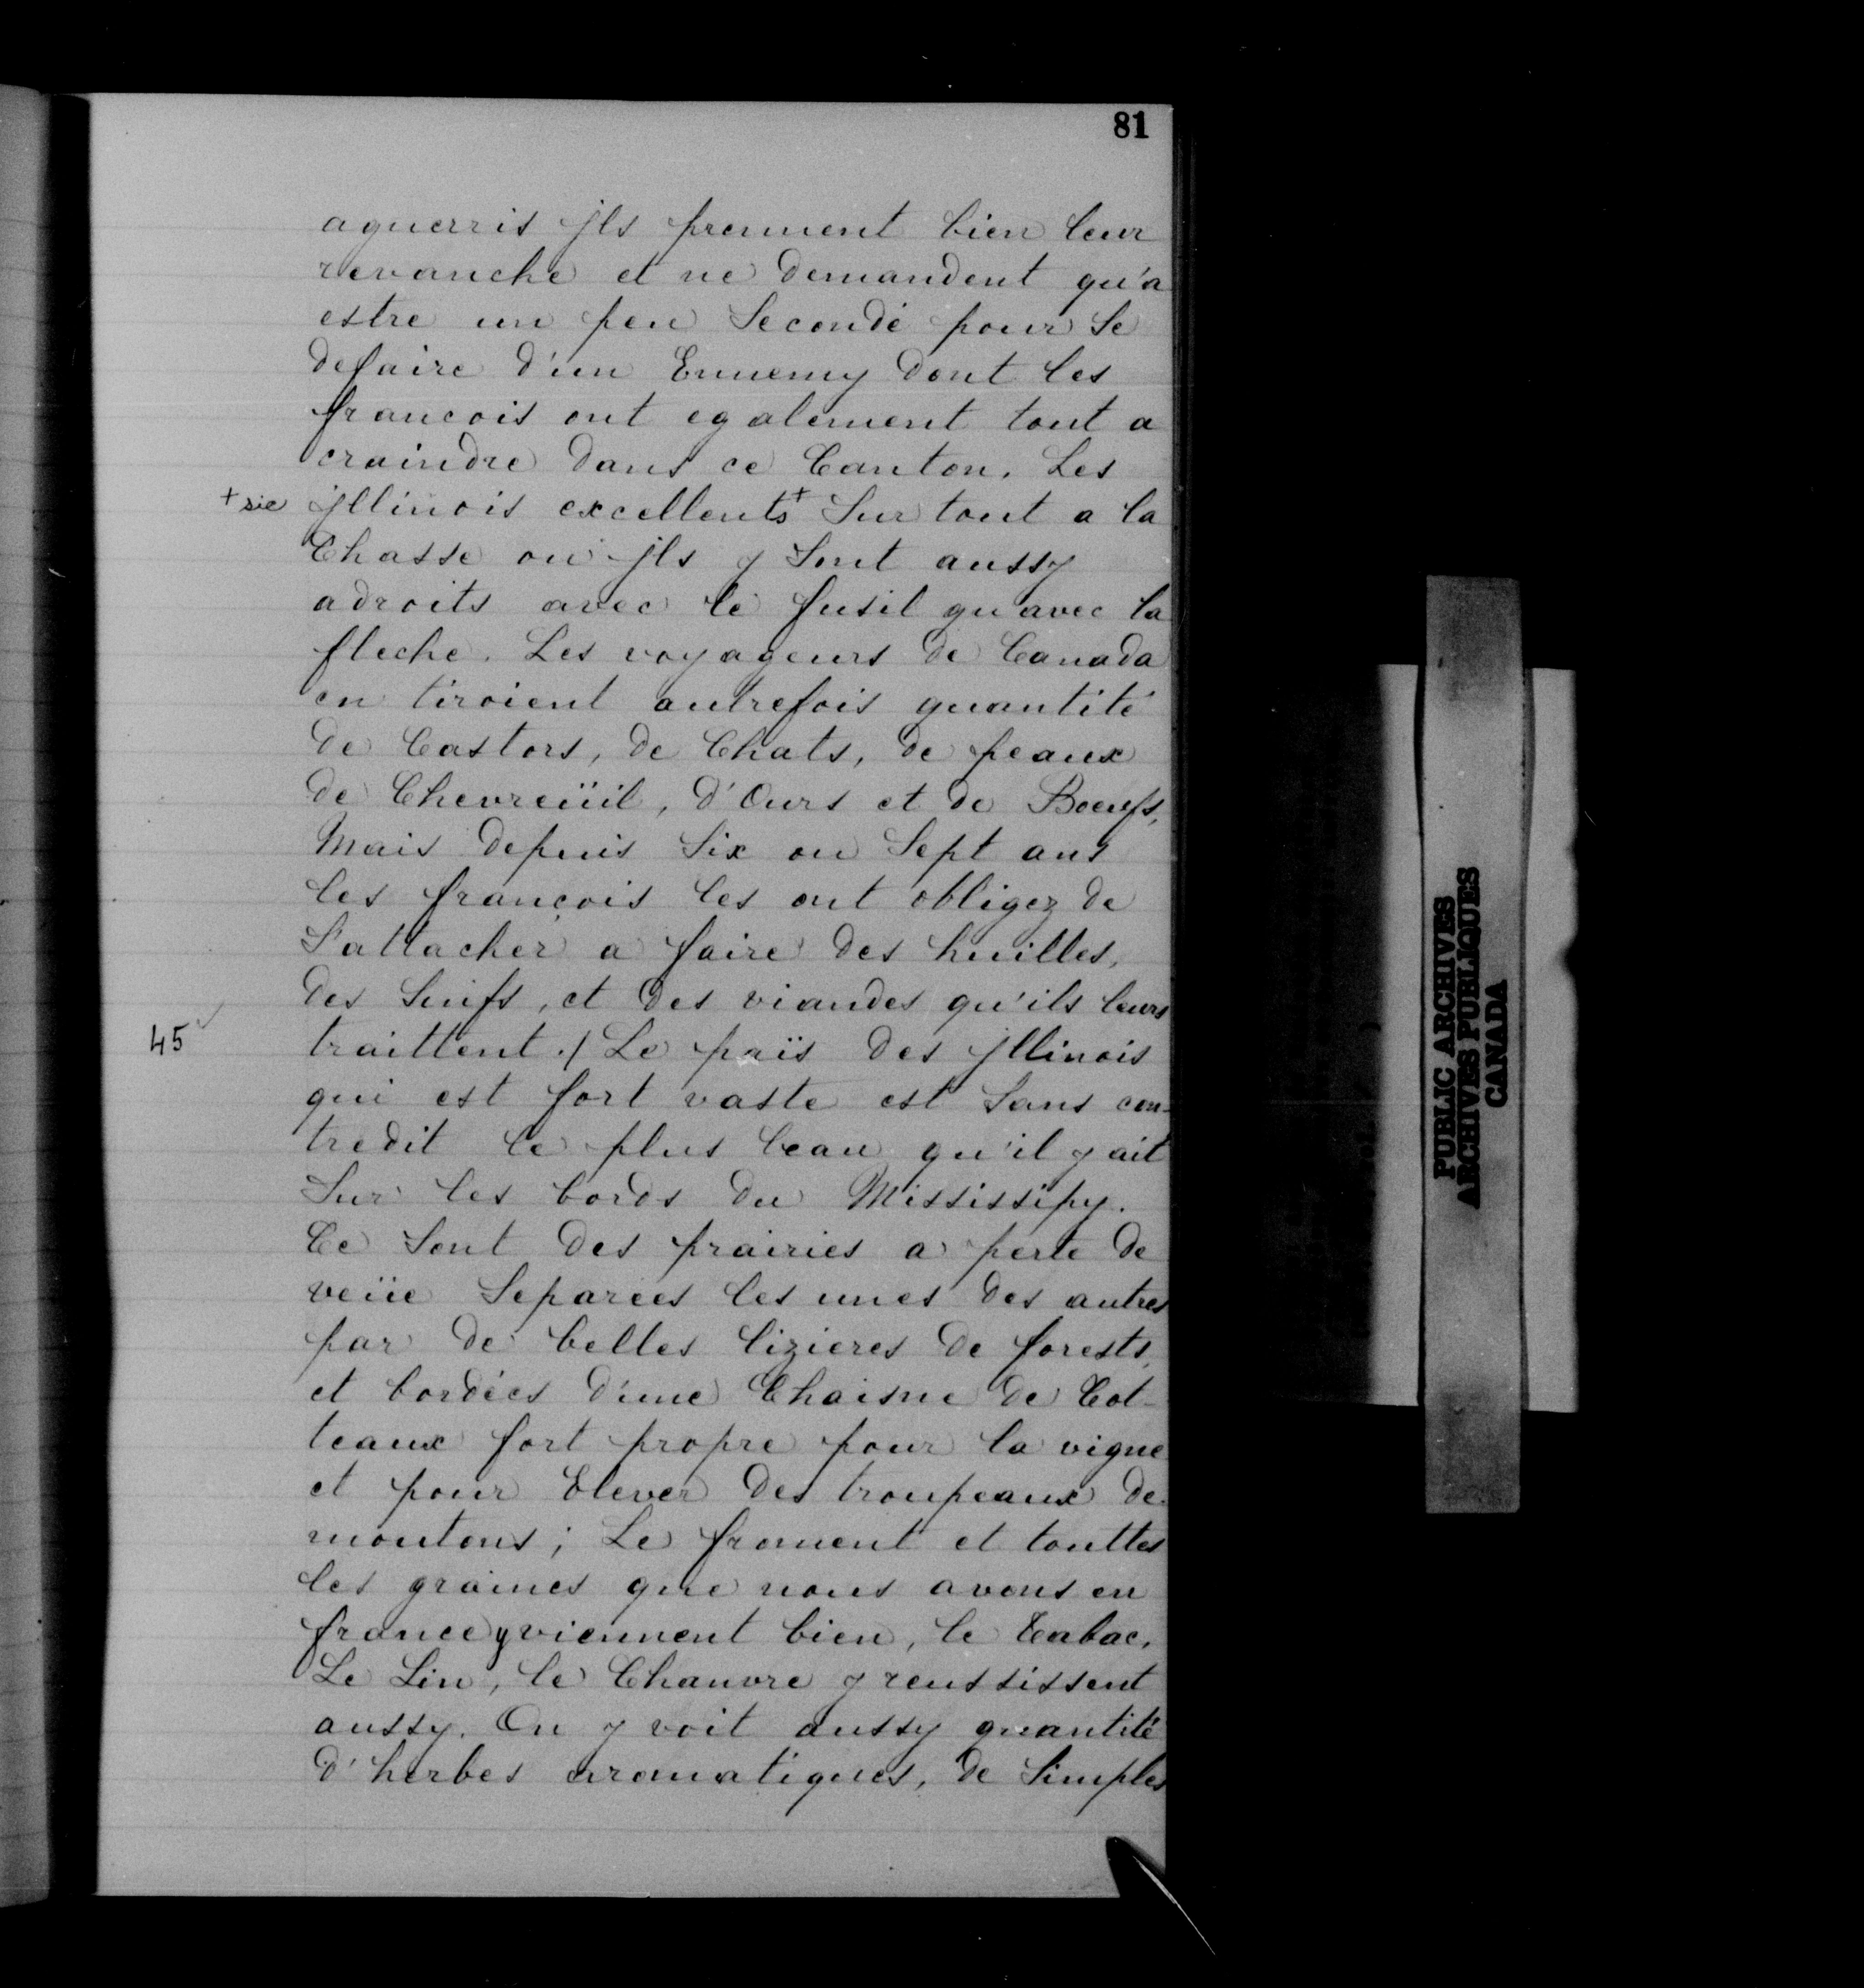 81
aguerris jls prennent bien leur
revanche et ne demandent qu'a
estre un peu Secondé pour Se
defaire d'un Ennemy dont les
francois ont egalement tout a
craindre dans ce Canton. Les
+ sic jllinois excellents + Sur tout a la
Chasse ou jls y Sont aussy
adroits avec le fusil qu'avec la
fleche. Les voyageurs de Canada
en tiroient autrefois quantité
de Castors, de Chats, de peaux
de Chevreüil, d'Ours et de Boeufs,
Mais depuis Six ou Sept ans
les françois les ont obligez de
S'attacher a faire des huilles,
des Suifs, et des viandes qu'ils leurs
45 traittent ./ Le païs des jllinois
qui est fort vaste est Sans con-
tredit le plus beau qu'il y ait
Sur les bords du Mississipy.
Ce Sont des prairies a perte de
veüe Separées les unes des autres
par de belles lizieres de forests,
et bordées d'une Chaisne de Cot-
teaux fort propre pour la vigne
et pour Elever des troupeaux de
moutons ; Le froment et touttes
les graines que nous avons en
france y viennent bien, le Tabac,
Le Lin, le Chanvre y reussissent
aussy. On y voit aussy quantité
d'herbes aromatiques, de Simples
PUBLIC ARCHIVES
ARCHIVES PUBLIQUES
CANADA